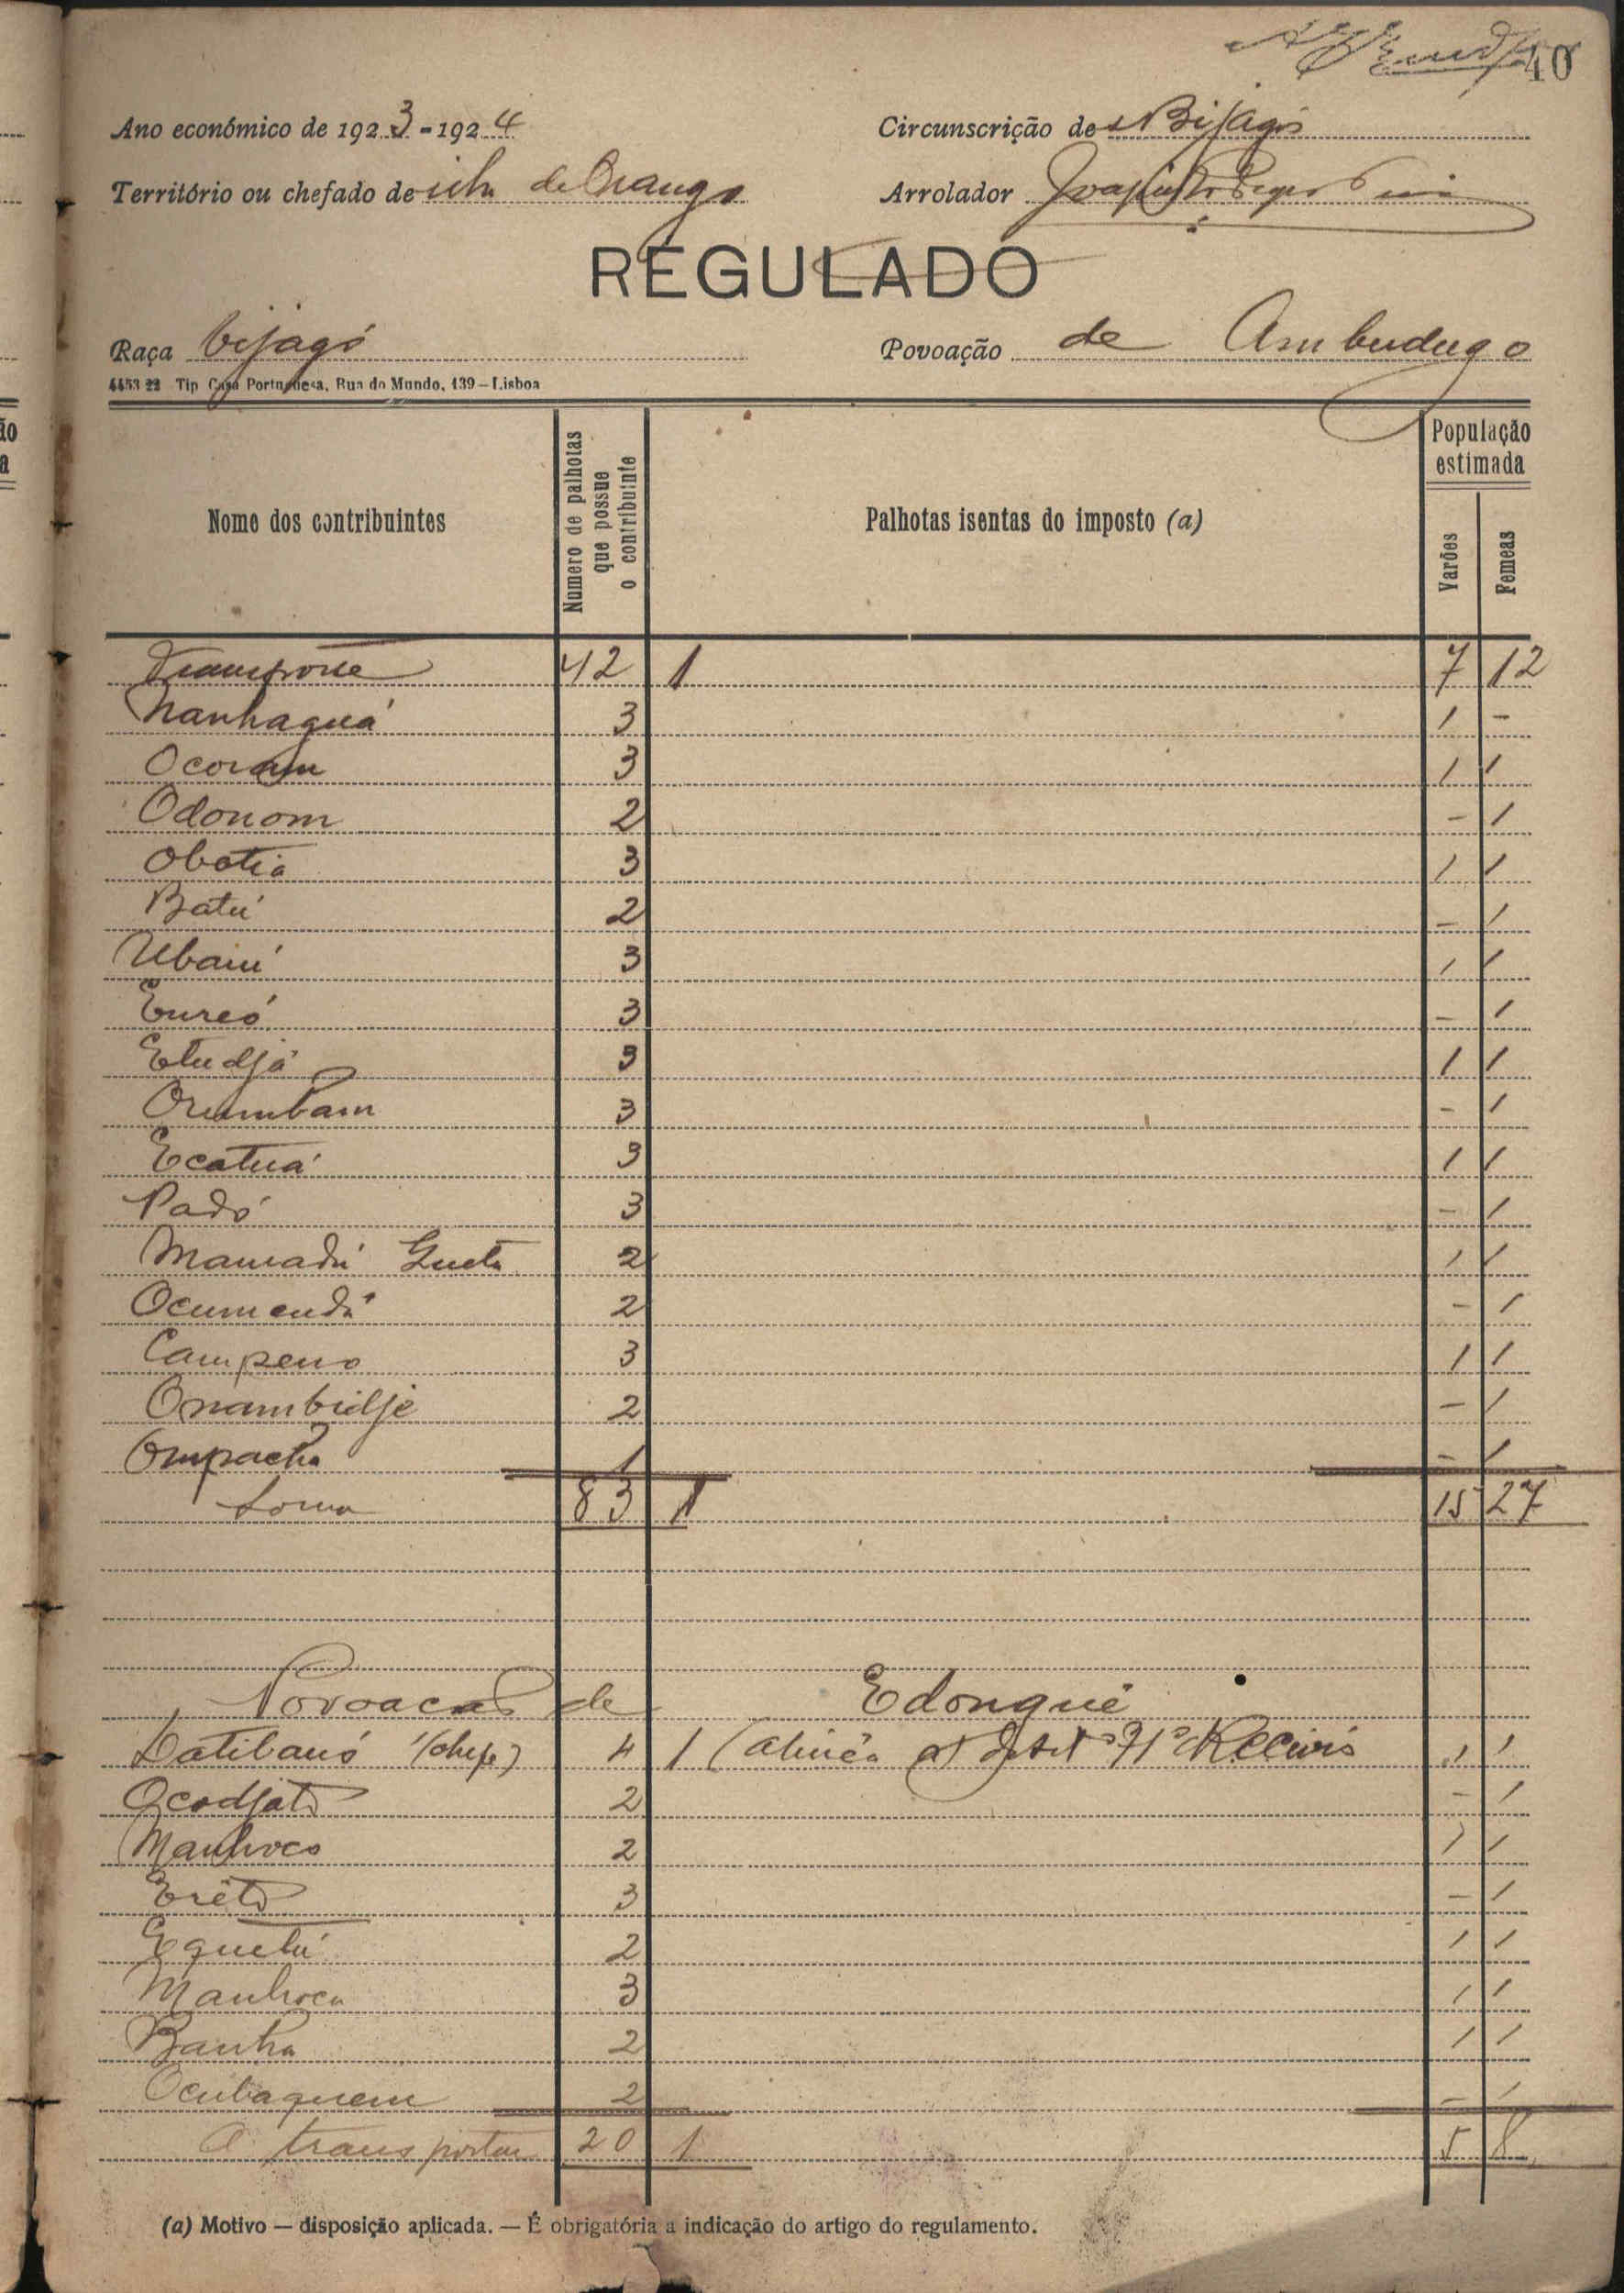 40
Ano económico de 1923-1924
Circunscrição de Bijagós
Território ou chefado de ilha de Orango
Arrolador
REGULADO
Raça bijagó
Povoação de Ambudugo
4453 22 Tip Casa Portuguesa, Rua do Mundo, 139 – Lisboa
Nome dos contribuintes
Numero de palhotas que possue o contribuinte
Palhotas isentas do imposto (a)
População estimada
Varões
Femeas
Transporte 42 1 7 12
Nanhaguá 3 1 -
Ocoram 3 1 1
Odonom 2 - 1
Obotia 3 1 1
Batú 2 - 1
Ubaiú 3 1 1
Eureó 3 - 1
Etudjá 3 1 1
Orumbam 3 - 1
Ecatuá 3 1 1
Padó 3 - 1
Mamadú Gueta 2 1 1
Ocumendú 2 - 1
Campeno 3 1 1
Onambidjé 2 - 1
Ompacha 1 - 1
Soma 83 1 15 27
Povoacão de Edonguê
Batibaná (chefe) 4 1 (alinea a) 1 1
Ocodjato 2 - 1
Manhoco 2 1 1
Eréto 3 - 1
Equetú 2 1 1
Manhoca 3 1 1
Banha 2 1 1
Ocubaquem 2 - 1
A transportar 20 1 5 8
(a) Motivo — disposição aplicada. — É obrigatória a indicação do artigo do regulamento.